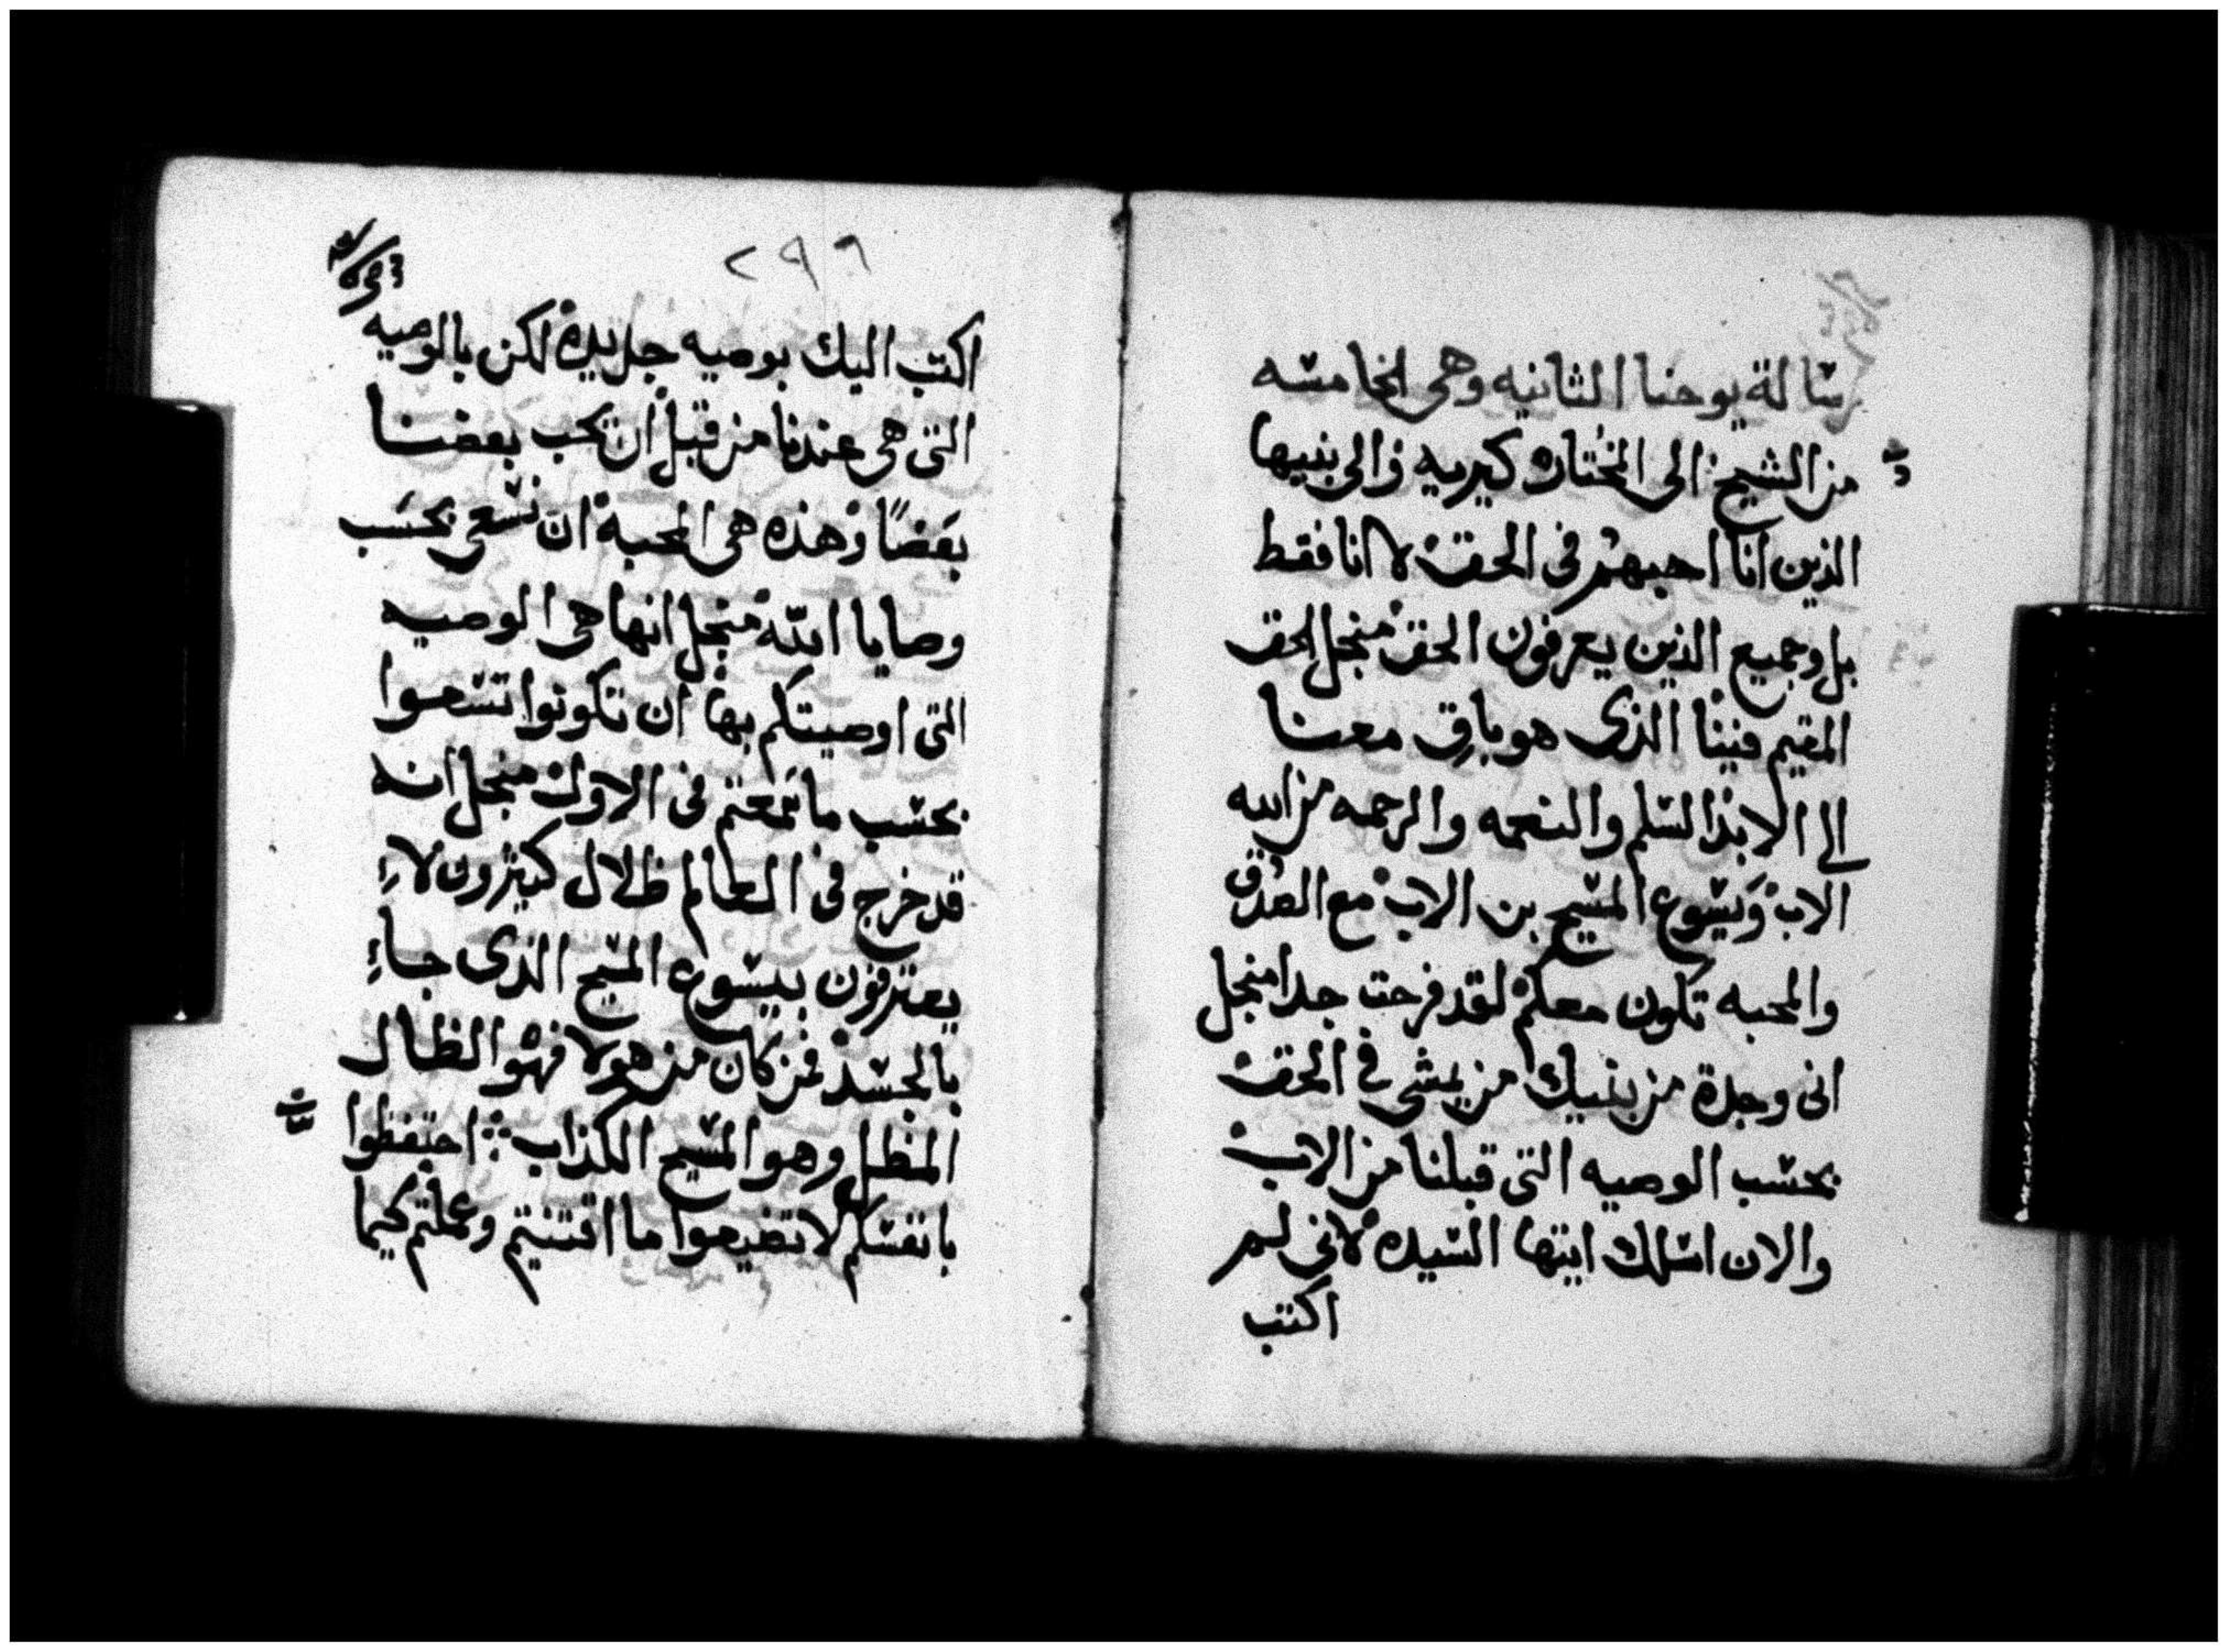 رسالة يوحنا الثانيه وهى الخامسه
من الشيخ الى المختاره كيريه والى بنيها
الذين انا احبهم فى الحق لا انا فقط
بل وجميع الذين يعرفون الحق منجل الحق
المقيم فينا الذى هو باق معنا
الى الابد السلم والنعمه والرحمه من الله
الاب ويسوع المسيح بن الاب مع الصدق
والمحبه تكون معكم لقد فرحت جدا منجل
انى وجدة من بنيك من يمشى فى الحق
بحسب الوصيه التى قبلنا من الاب
والان اسلك ايتها السيده لانى لم
اكتب
٢٩٦
اكتب اليك بوصيه جديدة لكن بالوصيه
التى هى عندنا من قبل ان نحب بعضنا
بعضًا وهذه هى المحبة ان نسعى بحسب
وصايا الله منجل انها هى الوصيه
التى اوصيتكم بها ان تكونوا تسعوا
بحسب ما سمعتم فى الاول منجل انه
قد خرج فى العالم ظلال كثيرون لاء
يعترفون بيسوع المسيح الذى جاء
بالجسد فمن كان من هولا فهو الظال
المظل وهو المسيح الكذاب احتفظوا
بانفسكم لا تضيعوا ما اقتنيتم وعملتم لكيما